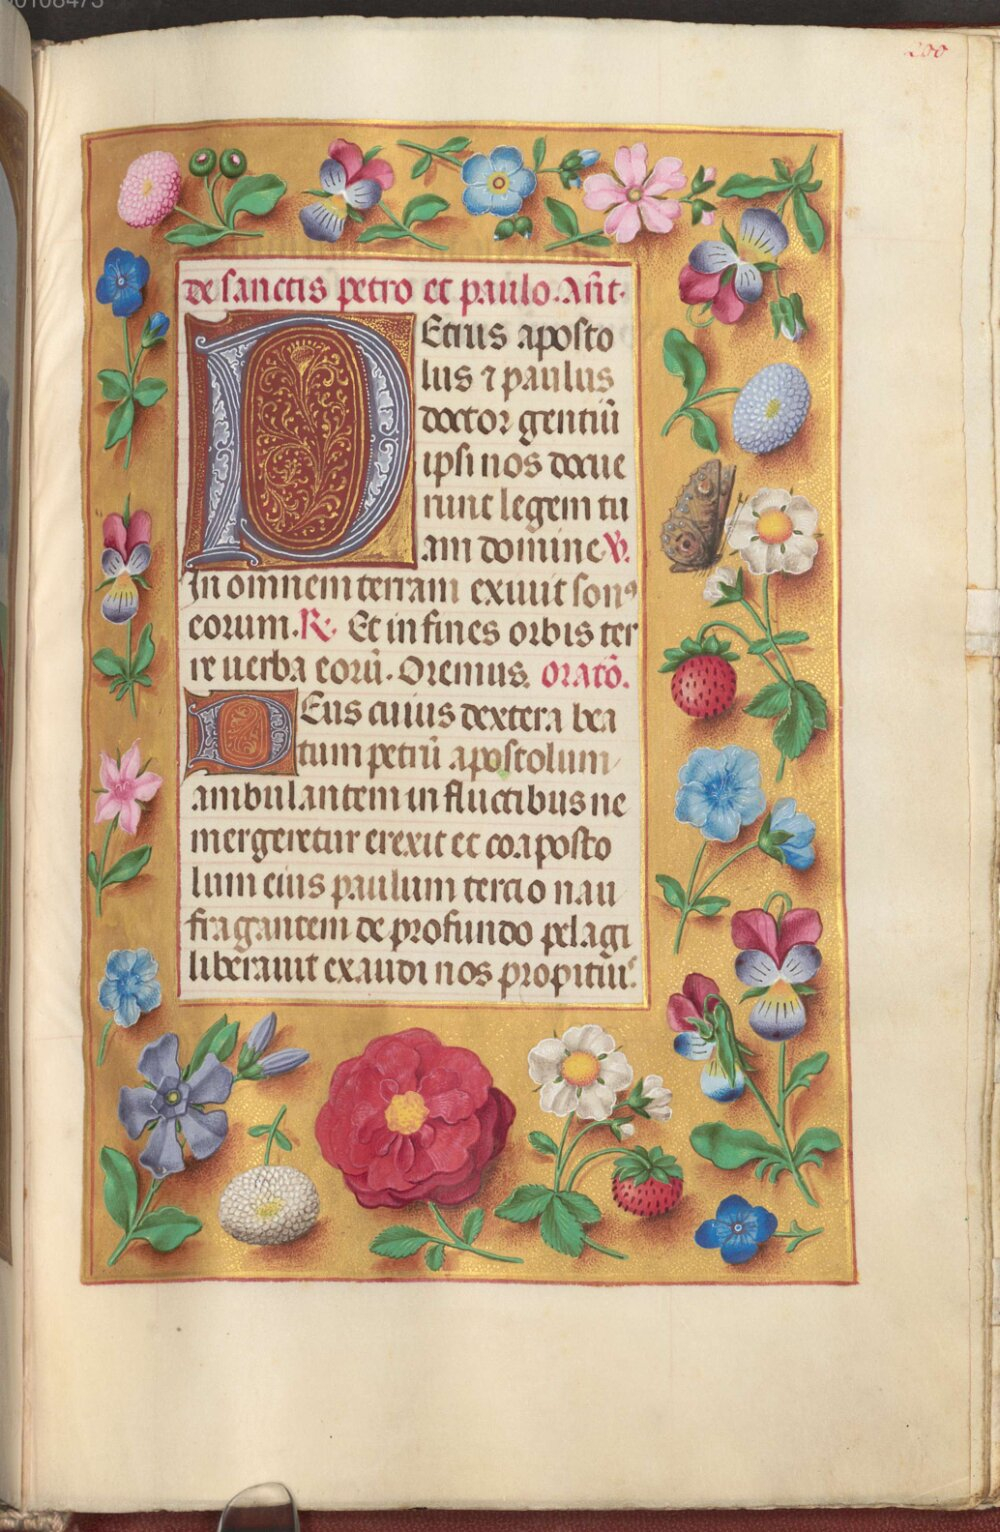 00108473
200
de sanctis petro et paulo. Añt.
PEtrus aposto
lus ⁊ paulus
doctor gentiū
ipsi nos docue
runt legem tu
am domine. V.
In omnem terram exiuit sonꝰ
eorum. R. Et in fines orbis ter
re uerba eorū. Oremus. oratō.
DEus cuius dextera bea
tum petrū apostolum
ambulantem in fluctibus ne
mergeretur erexit et coaposto
lum eius paulum tercio nau
fragantem de profundo pelagi
liberauit exaudi nos propitiuˢ.